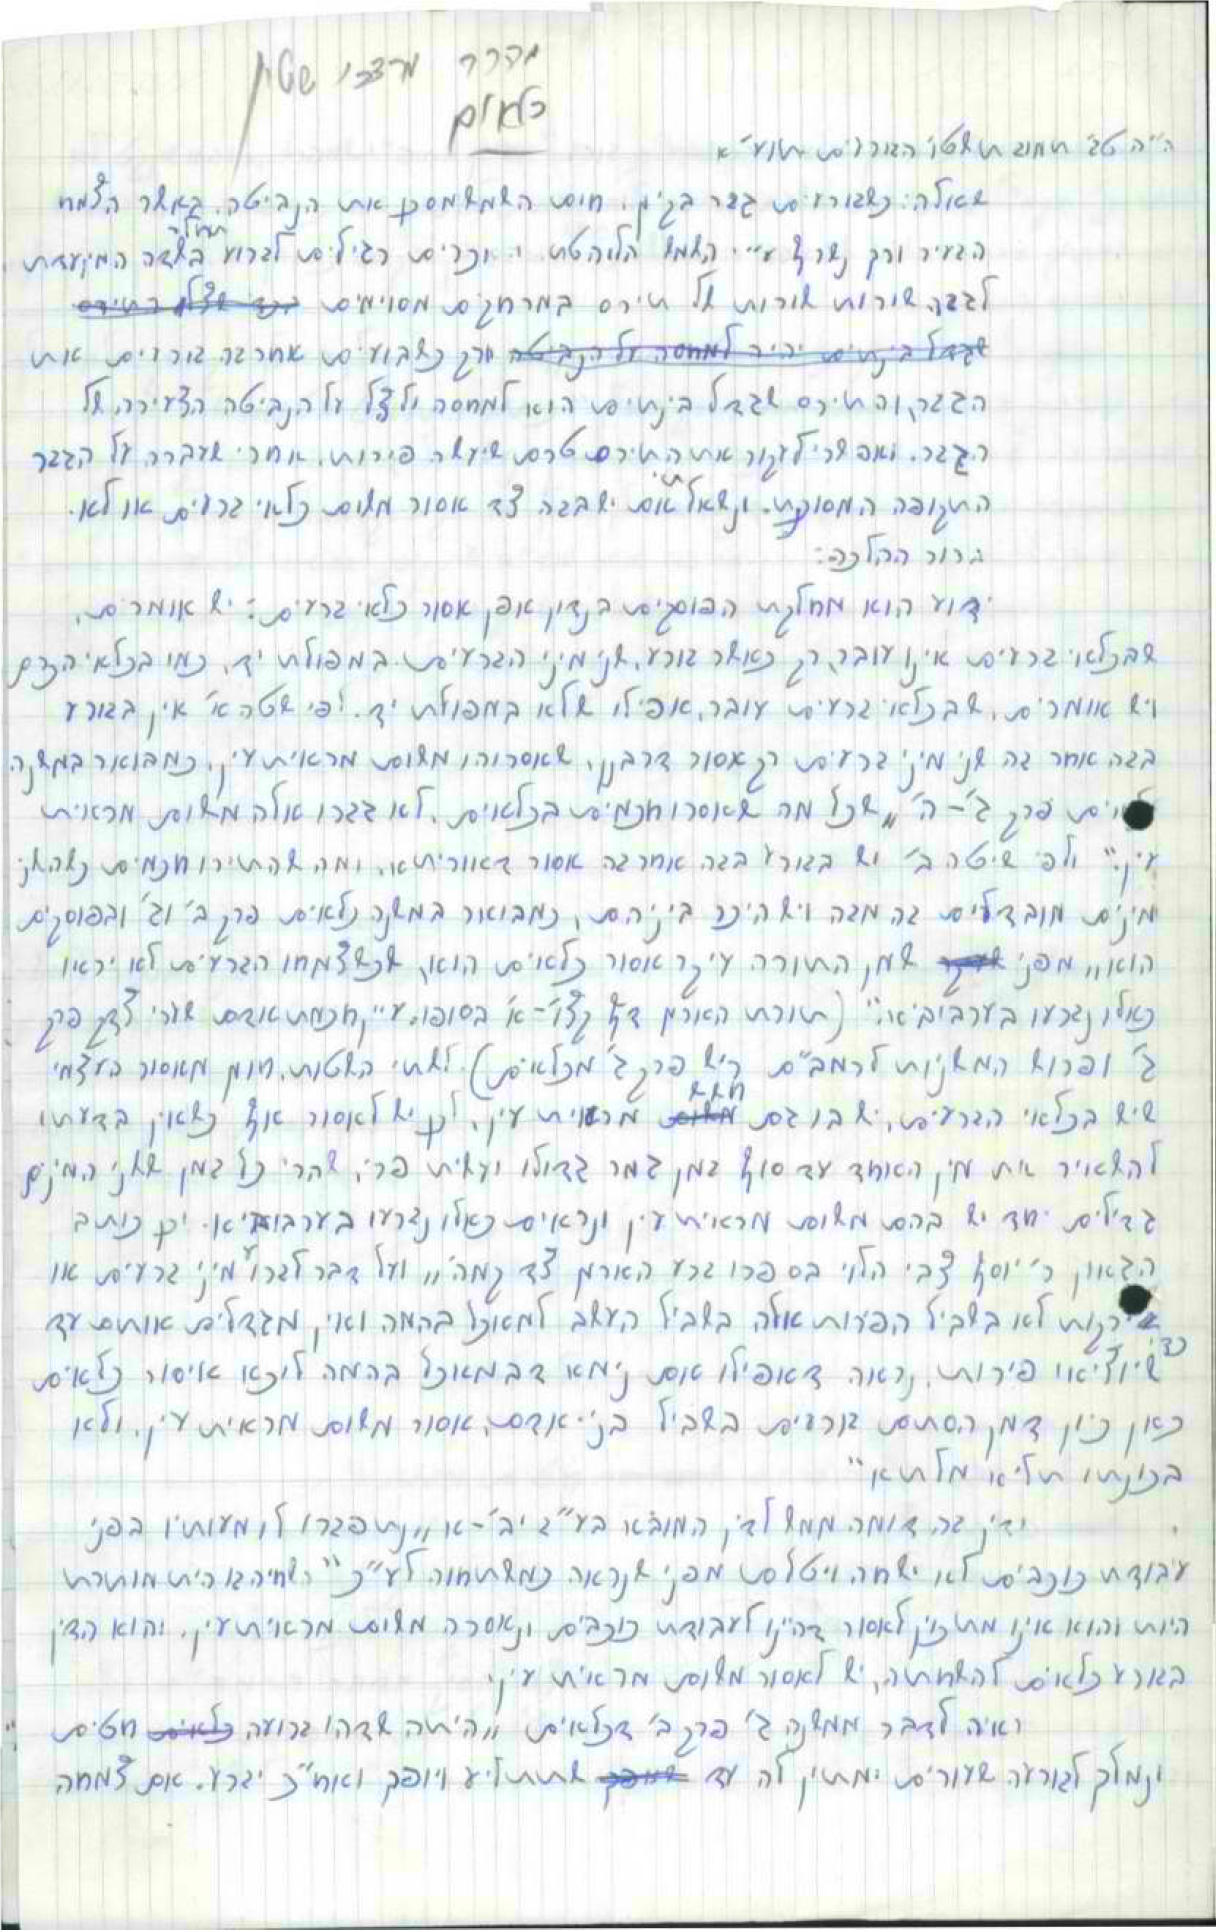 מרדכי
כלאים
שאלה: כשזורעים גזר בקיץ, חום השמש מסכן את הנביטה, כאשר הצמח
הצעיר ורך נשרף ע"י השמש הלוהטת. רגילים לזרוע תחלה בשדה המיועדת
לגזר שורות שורות של תירס במרחקים מסוימים
ורק כשבועים אחר זה זורעים את
הגזר, והתירס שגדל בינתים הוא למחסה ולצל על הנביטה הצעירה של
הגזר. ואפשר לעקור את התירס טרם שיעשה פירות, אחרי שעברה על הגזר
התקופה המסוכנת. ונשאלתי אם יש בזה צד אסור משום כלאי זרעים או לא.
ברור ההלכה:
ידוע הוא מחלקת הפוסקים בנדון אפן אסור כלאי זרעים: יש אומרים,
שבכלאי זרעים אינו עובר, רק כאשר זורע שני מיני הזרעים במפולת יד, כמו בכלאי הכרם
ויש אומרים, שבכלאי זרעים עובר, אפילו שלא במפולת יד. לפי שטה א' אין בזורע
בזה אחר זה שני מיני זרעים רק אסור דרבנן, שאסרוהו משום מראית עין, כמבואר במשנה
כלאים פרק ג'-ה' "שכל מה שאסרו חכמים בכלאים, לא גזרו אלא משום מראית
עין." ולפי שיטה ב' יש בזורע בזה אחר זה אסור דאוריתא, ומה שהתירו חכמים כשהשני
מינים מובדלים זה מזה ויש היכר ביניהם, כמבואר במשנה כלאים פרק ב' וג' ובפוסקים
הוא "מפני שמן התורה עיקר אסור כלאים הוא, שכשצמחו הזרעים לא יראו
כאלו נזרעו בערבוביא." (תורת הארץ דף קצו'-א' בסופו, עיין חכמת אדם שערי צדק פרק
ג' ופרוש המשניות לרמב"ם ריש פרק ג' מכלאים) לשתי השטות, חוץ מאסור העצמי
שיש בכלאי הזרעים, יש בו גם חשש מראית עין, לכן יש לאסור אף כשאין בדעתו
להשאיר את מין האחד עד סוף זמן גמר גדולו ועשית פרי, שהרי כל זמן ששני המינים
גדילים יחד יש בהם משום מראית עין ונראים כאלו נזרעו בערבוביא. וכן כותב
הגאון ר' יוסף צבי הלוי בספרו זרע הארץ צד קמה' "ועל דבר לזרוע מיני זרעים או
ירקות לא בשביל הפרות אלא בשביל העשב למאכל בהמה ואין מגדלים אותם עד
כדי שיוציאו פירות, נראה דאפילו אם נימא דבמאכל בהמה ליכא איסור כלאים
כאן כיון דמן הסתם זורעים בשביל בני-אדם, אסור משום מראית עין, ולא
בכונתו תליא מלתא"
ודין זה דומה ממש לדין המובא בע"ז יב'-א "נתפזרו לו מעותיו בפני
עבודת כוכבים לא ישחה ויטלם מפני שנראה כמשתחוה לע"כ" השחיה הזו היתה מותרת
היות והוא אינו מתכוין לאסור דהיינו לעבודת כוכבים ונאסרה משום מראית עין, והוא הדין
בזורע כלאים להשחתה, יש לאסור משום מראית עין.
ראיה לדבר ממשנה ג' פרק ב' דכלאים "היתה שדהו זרועה חטים
ונמלך לזורעה שעורים ימתין לה עד שתתליע ויופך ואח"כ יזרע. אם צמחה